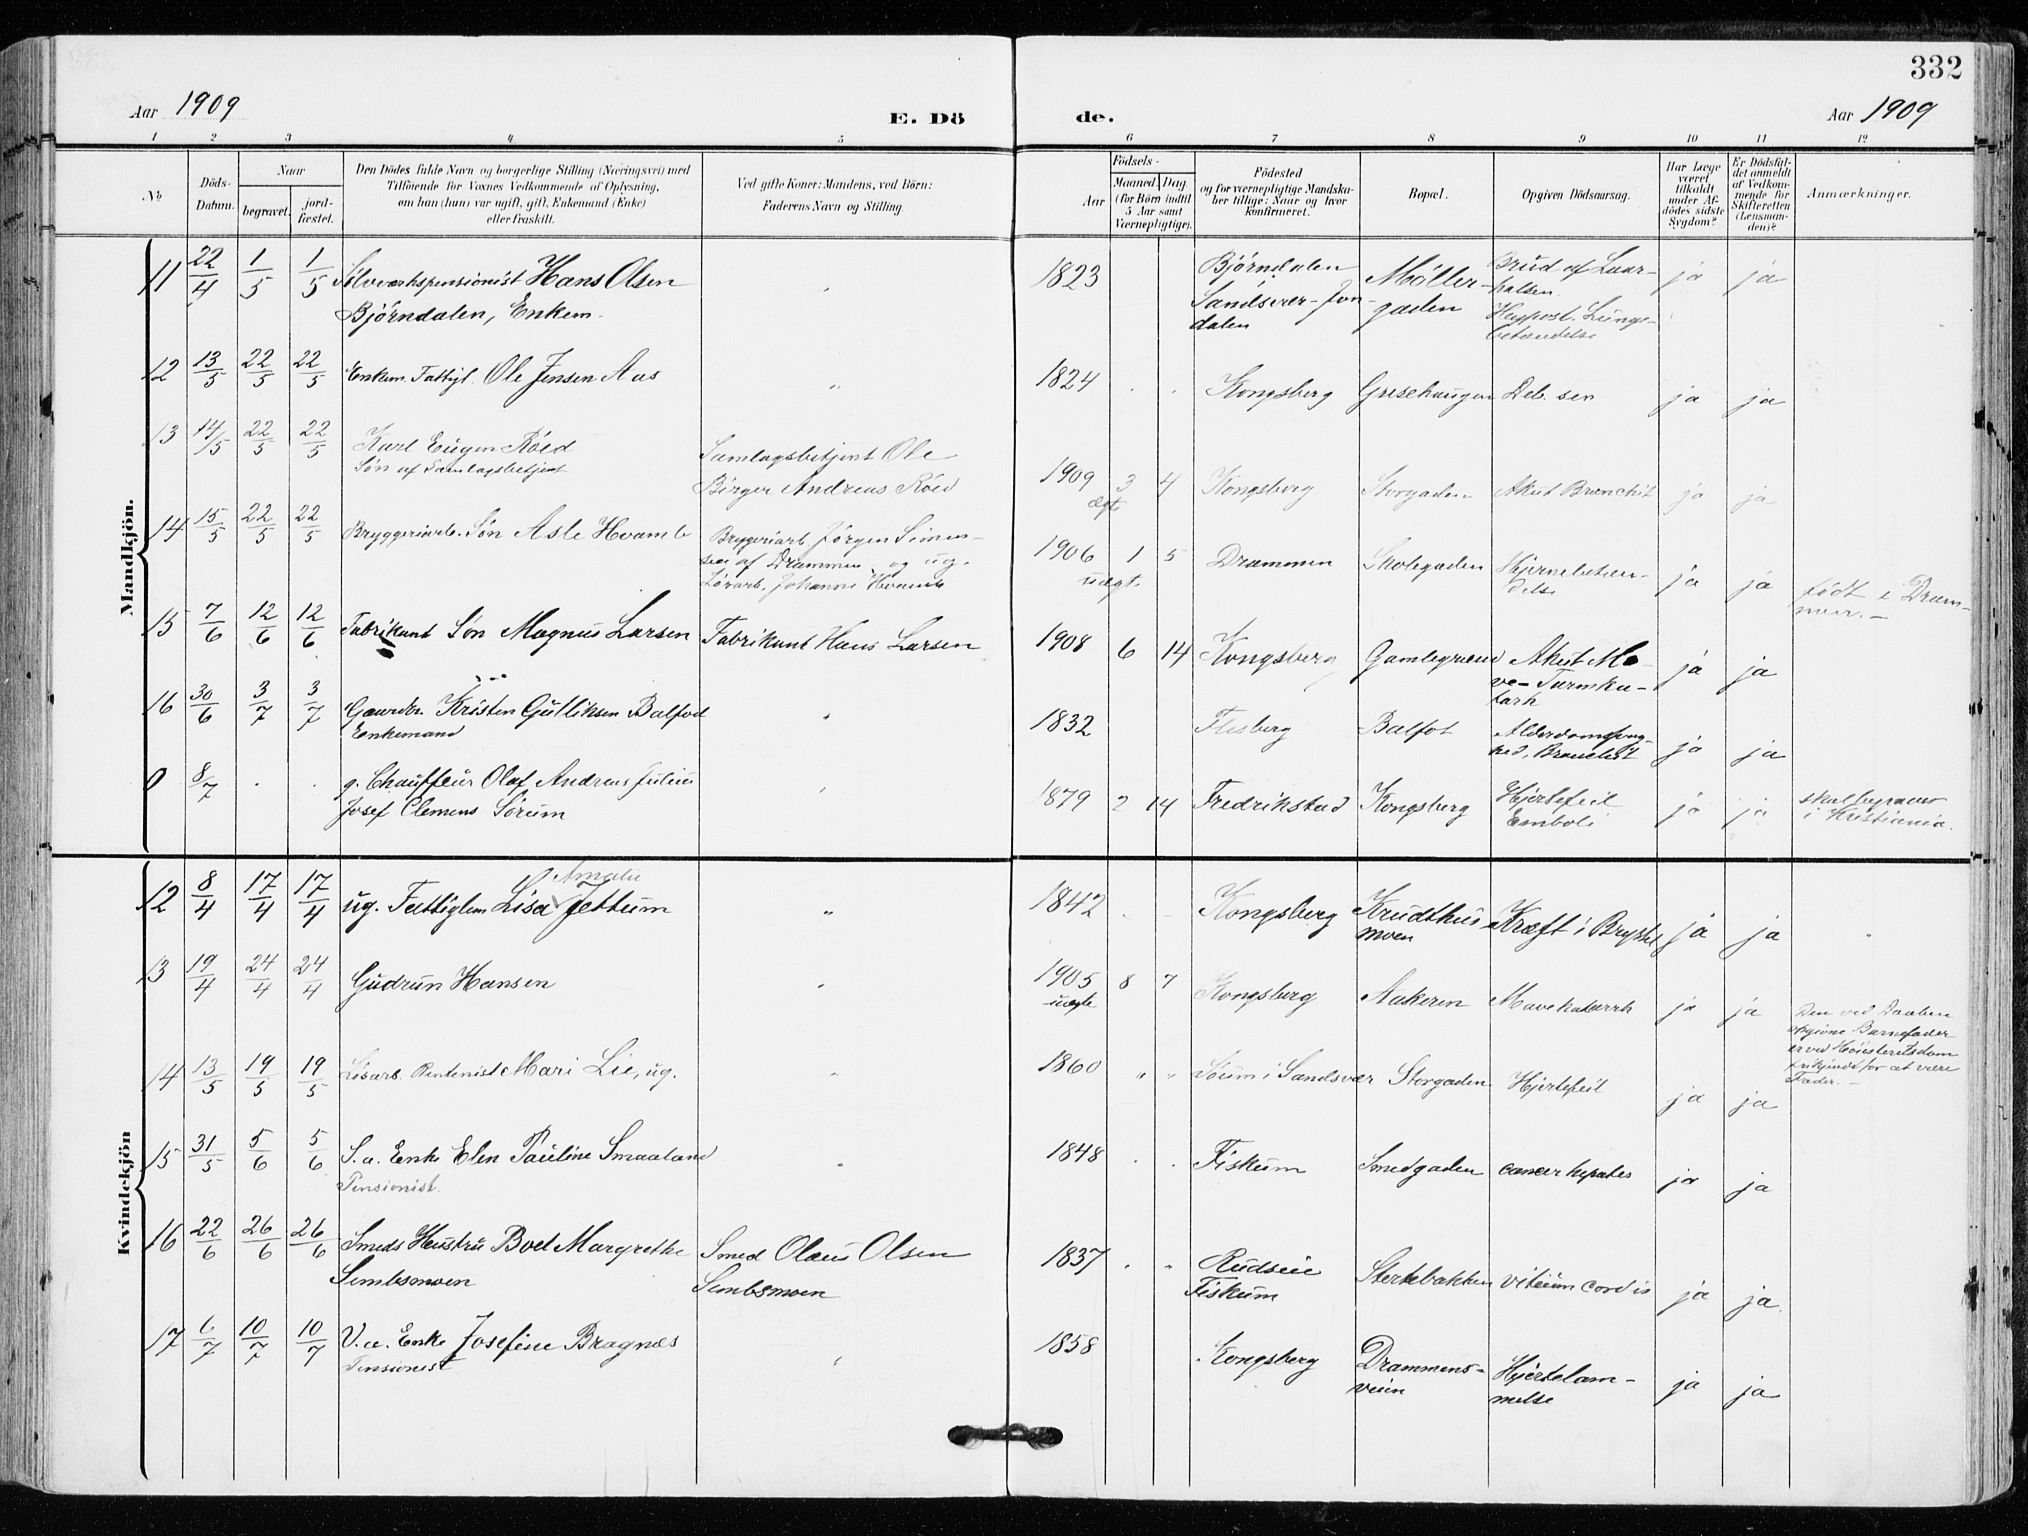 332
Aar 1909
E. Dö
de.
Aar 1909
1 2 3 4 5 6 7 8 9 10 11 12
No
Döds-
Datum.
Naar
begravet.
jord-
fæstet.
Den Dödes fulde Navn og borgerlige Stilling (Næringsvei) med
Tilföiende for Voxnes Vedkommende af Oplysning,
om han (hun) var ugift, gift, Enkemand (Enke)
eller fraskilt.
Ved gifte Koner: Mandens, ved Börn:
Faderens Navn og Stilling.
Födsels-
Aar
Maaned. Dag.
(for Börn indtil
5 Aar samt
Værnepligtige).
Födested
og for værnepligtige Mandska-
ber tillige: Naar og hvor
konfirmeret.
Bopæl.
Opgiven Dödsaarsag.
Har Læge
været
tilkaldt
under Af-
dödes sidste
Sygdom?
Er Dödsfal-
det anmeldt
af Vedkom-
mende for
Skifteretten
(Lensman-
den)?
Anmærkninger.
Mandkjön.
11 22/4 1/5 1/5 Sølvverkspensionist Hans Olsen
Bjørndalen, Enkem.
1823 Bjørndalen
Sandsvær-Jon-
dalen
Møller-
gaden
Brud af Laar-
halsen.
Hypost. Lunge-
betændelse
ja ja
12 13/5 22/5 22/5 Enkem. Fattigl. Ole Jensen Aas
1824 Kongsberg Grisehaugen Deb. sen ja ja
13 14/5 22/5 22/5 Karl Eugen Röed
Søn af Samlagsbetjent
Samlagsbetjent Ole
Birger Andreas Röed
1909 3 4 Kongsberg Storgaden Akut Bronchit ja ja
ægt.
14 15/5 22/5 22/5 Bryggeriarb. Søn Asle Hvamb
Bryggeriarb Jörgen Simen-
sen af Drammen og ug.
Lösarb. Johanne Hvamb
1906 1 5 Drammen Skolegaden Hjernebetæn-
delse
uægt.
ja ja
født i Dram-
men.-
15 7/6 12/6 12/6 Fabrikant Søn Magnus Larsen Fabrikant Hans Larsen
1908 6 14 Kongsberg Gamlegrænd Akut Ma-
ve-Tarmka-
tarh
ja ja
16 30/6 3/7 3/7 Gaardbr. Kristen Gulliksen Balfod
Enkemand
1832 Flesberg Balfot Alderdomssvag-
hed, Bronchit
ja ja
0 8/7 g. Chauffeur Olaf Andreas Julius
Josef Clemens Sørum
1879 2 14 Fredrikstad Kongsberg Hjertefeil
Emboli
ja ja
skal begraves
i Kristiania.
Kvindekjön
12 8/4 17/4 17/4 ug. Fattiglem Lisa Amalie Jettum
1842 Kongsberg Krudthus
moen
Kræft i Brystet ja ja
13 19/4 24/4 24/4 Gudrun Hansen
1905 8 7 Kongsberg Aakeren Mavekatarrh ja ja
uægte
Den ved Daaben
opgivne Barnefader
er ved Høiesteretsdom
frikjendt for at være
Fader.-
14 13/5 19/5 19/5 Løsarb. Rentenist Mari Lie, ug.
1860 Søum i Sandsvær Storgaden Hjertefeil ja ja
15 31/5 5/6 5/6 S.a. Enke Elen Pauline Smaaland
Pensionist.
1848 Fiskum Smedgaden cancer hepatis ja ja
16 22/6 26/6 26/6 Smeds Hustru Boel Margrethe
Sembsmoen
Smed Olaus Olsen
Sembsmoen
1837 Rudseie
Fiskum
Stertebakken vitium cordis ja ja
17 6/7 10/7 10/7 V.a. Enke Josefine Bragnæs
Pensionist
1858 Kongsberg Drammens-
veien
Hjertelam-
melse
ja ja